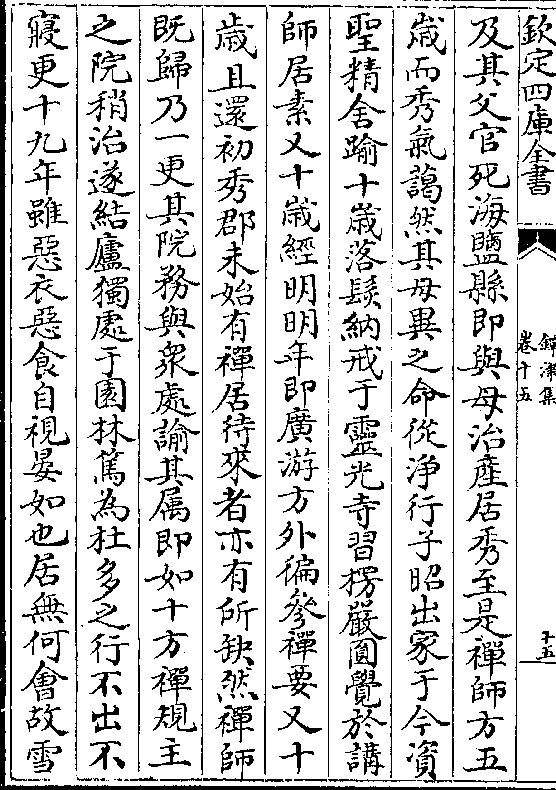 欽定四庫全書
鐔津集
卷十五
十五
及其父官死海鹽縣即與母治產居秀至是禪師方五
歲而秀氣藹然其母異之命從淨行子昭出家于今資
聖精舍踰十歲落髮納戒于靈光寺習楞嚴圓覺於講
師居素又十歲經明明年即廣游方外徧參禪要又十
歲且還初秀郡未始有禪居待來者亦有所缺然禪師
既歸乃一更其院務與衆處諭其属即如十方禪規主
之院稍治遂結廬獨處于園林篤為杜多之行不出不
寢更十九年雖惡衣惡食自視晏如也居無何會故雪